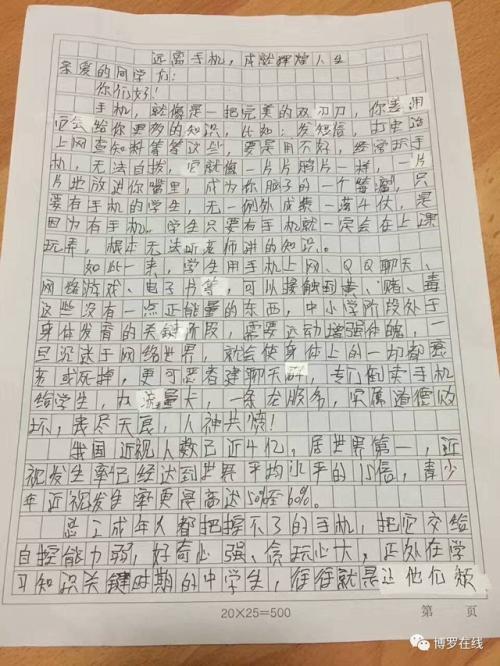 远离手机，成就辉煌人生
亲爱的同学们：
你们好！
手机，就像是一把完美的双刃刀，你善用
它会给你更多的知识，比如：发短信，打电话
上网查知料等等这些，要是用不好，经常玩手
机，无法自拨，它就像一片片鸦片一样，一片
片地放进你嘴里，成为你脑子的一个肿瘤，只
要有手机的学生，无一例外成绩一落千丈，是
因为有手机。学生只要有手机就一定会在上课
玩弄，根本无法听老师讲的知识。
如此一来，学生用手机上网、QQ聊天、
网络游戏、电子书等，可以接触到黄、赌、毒
这些没有一点正能量的东西，中小学阶段处于
身体发育的关键阶段，需要运动增强体魄，一
旦沉迷于网络世界，就会使身体上的一切都衰
老或死掉，更可恶者建聊天群，专门倒卖手机
给学生，办流量卡，一条龙服务，实属道德败
坏，丧尽天良，人神共愤！
我国近视人数已近4亿，居世界第一，近
视发生率已经达到世界平均水平的1.5倍，青少
年近视发生率更是高达50%至60%。
总之成年人都把握不了的手机，把它交给
自控能力弱，好奇心强、贪玩心大，正处在学
习知识关键时期的中学生，往往就是让他们颓
20×25=500
第 页
博罗在线